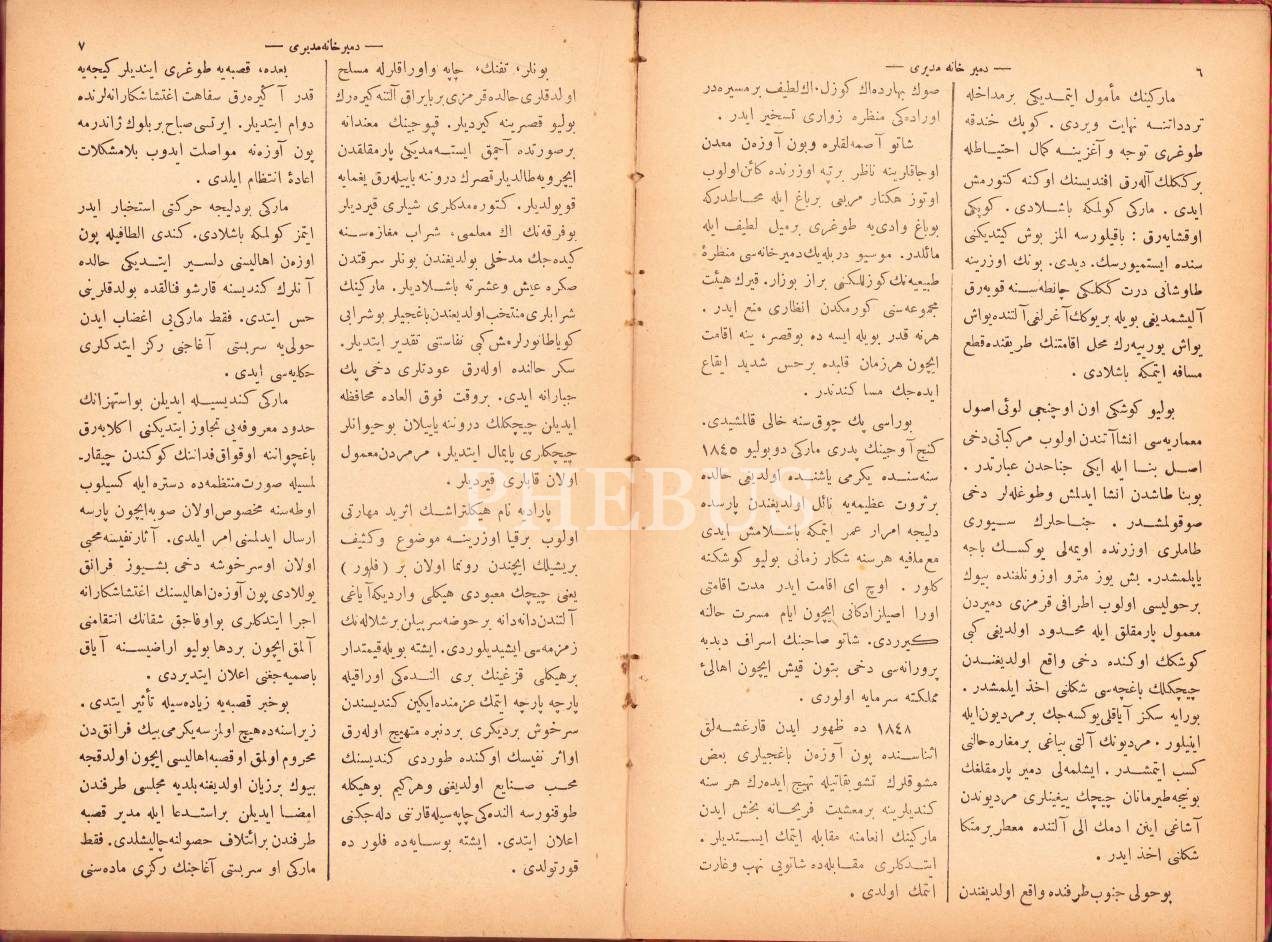 ٦
— دمیر خانه مدیری —
مارکینك مأمول ایتمدیکی برمداخله
تردداتنه نهایت ویردی . کوپك خندقه
طوغری توجه و آغزینه کمال احتیاطله
برککلك آله‌رق افندیسنك اوکنه کتورمش
ایدی . مارکی کولمکه باشلادی . کوپکی
اوقشایه‌رق : باقیلورسه المز بوش کیتدیکنی
سنده ایستمیورسك . دیدی . بونك اوزرینه
طاوشانی درت ککلکی چانطه‌سنه قویه‌رق
آلیشمدیغی بویله بریوکك آغرلغی آلتنده یواش
یواش یورییه‌رك محل اقامتنك طریقنده قطع
مسافه ایتمکه باشلادی .
بولیو کوشکی اون اوچنجی لوئی اصول
معماریه‌سی انشاآتندن اولوب مرکباتی دخی
اصل بنا ایله ایکی جناحدن عبارتدر .
بوبنا طاشدن انشا ایدلمش وطوغله‌لر دخی
صوقولمشدر . جناحلرك سیوری
طاملری اوزرنده اویمه‌لی یوکسك باجه
یاپلمشدر . بش یوز مترو اوزونلغنده بیوك
برحولیسی اولوب اطرافی قرمزی دمیردن
معمول پارمقلق ایله محدود اولدیغی کبی
کوشکك اوکنده دخی واقع اولدیغندن
چیچکلك باغچه‌سی شکلنی اخذ ایلمشدر .
بورایه سکز آیاقلی یوکسه‌جك برمردیون ایله
ایلیلور . مردیونك آلتی بیاغی برمغاره حالنی
کسب ایتمشدر . ایشلمه‌لی دمیر پارمقلغك
بونجه طیرمانان چیچك ییغینلری مردیوندن
آشاغی اینن ادمك الی آلتنده معطر برمتکا
شکلنی اخذ ایدر .
بوحولی جنوب طرفنده واقع اولدیغندن
صوك بهارده‌ اك کوزل . اك لطیف بر مسیره در
اوراده‌کی منظره زواری تسخیر ایدر .
شاتو آصمه‌لقلره و پون آوزه‌ن معدن
اوجاقلرینه ناظر برتپه اوزرنده کائن اولوب
اوتوز هکتار مربعی برباغ ایله محاطدرکه
بوباغ وادی‌یه طوغری برمیل لطیف ایله
مائلدر. موسیو دربله‌یك دمیرخانه‌سی منظرهٔ
طبیعیه‌نك کوزللکنی براز بوزار. قیرك هیئت
مجموعه‌سنی کورمکدن انظاری منع ایدر .
هرنه قدر بویله ایسه ده بوقصر، ینه اقامت
ایچون هرزمان قلبده برحس شدید ایقاع
ایده‌جك مسا کندندر .
بوراسی پك چوق سنه خالی قالمشیدی .
کنج آوجینك پدری مارکی دوبولیو ١٨٤٥
سنه‌سنده یکرمی یاشنده اولدیغی حالده
برثروت عظیمه‌یه نائل اولدیغندن پارسده
دلیجه امرار عمر ایتمکه باشلامش ایدی
مع‌مافیه هرسنه شکار زمانی بولیو کوشکنه
کلور . اوچ ای اقامت ایدر مدت اقامتی
اورا اصیلزادکانی ایچون ایام مسرت حالنه
کیرردی. شاتو صاحبنك اسراف دبدبه
پرورانه‌سی دخی بتون قیش ایچون اهالیٔ
مملکته سرمایه اولوری .
١٨٤٨ ده ظهور ایدن قارغشه‌لق
اثناسنده پون آوزه‌ن باغجیلری بعض
مشوقلرك تشویقاتیله تهیج ایده‌رك هر سنه
کندیلرینه برمعیشت فریحانه بخش ایدن
مارکینك انعامنه مقابله ایتمك ایستدیلر .
ایتدکلری مقابله‌ده شاتویی نهب وغارت
ایتمك اولدی .
٧
— دمیر خانه مدیری —
بونلر، تفنك، چاپه و اوراقلرله مسلح
اولدقلری حالده قرمزی بربایراق آلتنه کیره‌رك
بولیو قصرینه کیردیلر. قپوجینك معندانه
برصورتده آچمق ایسته‌مدیکی پارمقلقدن
ایچرویه طالدیلر قصرك دروننه یاییله‌رق یغمایه
قویولدیلر. کتوره‌مدکلری شیلری قیردیلر
بوفرقه‌نك اك معلمی، شراب مغازه‌سنه
کیده‌جك مدخلی بولدیغندن بونلر سرقتدن
صکره عیش و عشرته باشلادیلر. مارکینك
شرابلری منتخب اولدیغندن باغجیلر بوشرابی
کویا طانورلرمش کبی نفاستنی تقدیر ایتدیلر.
سکر حالنده اوله‌رق عودتلری دخی پك
جبارانه ایدی. بروقت فوق العاده محافظه
ایدیلن چیچکلك دروننه یاییلان بوحیوانلر
چیچکلری پایمال ایتدیلر، مرمردن معمول
اولان قاپلری قیردیلر .
پارادیه نام هیکلتراشك اثرید مهارتی
اولوب برقیا اوزرینه موضوع و کثیف
بریشیلك ایچندن رونما اولان بر ( فلور )
یعنی چیچك معبودی هیکلی واردیکه آیاغی
آلتندن دانه دانه برحوضه سرپیلن برشلاله‌نك
زمزمه‌سی ایشیدیلوردی. ایشته بویله قیمتدار
برهیکلی قزغینك بری النده‌کی اوراقیله
پارچه پارچه ایتمك عزمنده ایکین کندیسندن
سرخوش بردیکری بردنبره متهیج اوله‌رق
اواثر نفیسك اوکنده طوردی کندیسنك
محب صنایع اولدیغنی و هرکیم بوهیکله
طوقنورسه النده‌کی چاپه‌سیله قارننی دله‌جکنی
اعلان ایتدی. ایشته بوسایه‌ده فلور ده
قورتولدی .
بعده، قصبه‌یه طوغری ایندیلر کیجه‌یه
قدر آ کیره‌رق سفاهت اغتشاشکارانه‌لرنده
دوام ایتدیلر. ایرتسی صباح بربلوك ژاندرمه
پون آوزه‌نه مواصلت ایدوب بلامشکلات
اعادهٔ انتظام ایلدی .
مارکی بودلیجه حرکتی استخبار ایدر
ایتمز کولمکه باشلادی. کندی الطافیله پون
اوزه‌ن اهالیسنی دلسیر ایتدیکی حالده
آنلرك کندیسنه قارشو فنالقده بولدقلرینی
حس ایتدی. فقط مارکی‌یی اغضاب ایدن
حولی‌یه سربستی آغاجنی رکز ایتدکلری
حکایه‌سی ایدی .
مارکی کندیسیله ایدیلن بواستهزانك
حدود معروفه‌یی تجاوز ایتدیکنی اکلایه‌رق
باغچواننه اوقواق فداننك کوکندن چیقار-
لمسیله صورت منتظمه‌ده دستره ایله کسیلوب
اوطه‌سنه مخصوص اولان صوبه ایچون پارسه
ارسال ایدلمسنی امر ایلدی. آثار نفیسه محبی
اولان اوسرخوشه دخی بشیوز فرانق
یوللادی پون آوزه‌ن اهالیسنك اغتشاشکارانه
اجرا ایتدکلری بواوفاجق شقانك انتقامنی
آلمق ایچون بردها بولیو اراضیسنه آیاق
باصمیه‌جغنی اعلان ایتدیردی .
بوخبر قصبه‌یه زیاده‌سیله تأثیر ایتدی .
زیرا سنه‌ده هیچ اولمزسه یکرمی بیك فرانق‌دن
محروم اولمق اوقصبه اهالیسی ایچون اولدقجه
بیوك برزیان اولدیغنه بلدیه مجلسی طرفندن
امضا ایدیلن براستدعا ایله مدیر قصبه
طرفندن برائتلاف حصولنه چالیشلدی. فقط
مارکی او سربستی آغاجنك رکزی ماده‌سنی
PHEBUS